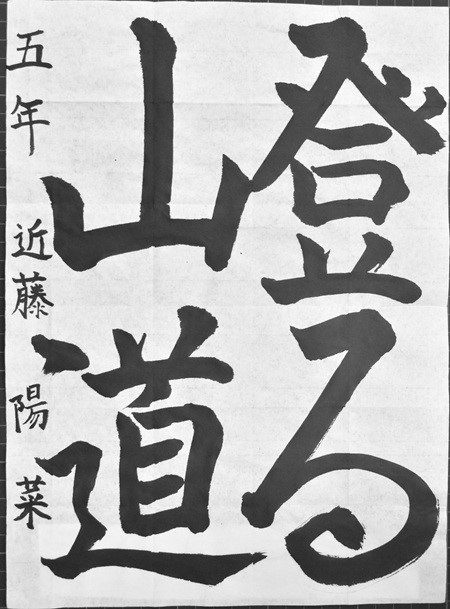 登る
山道
五年 近藤陽菜